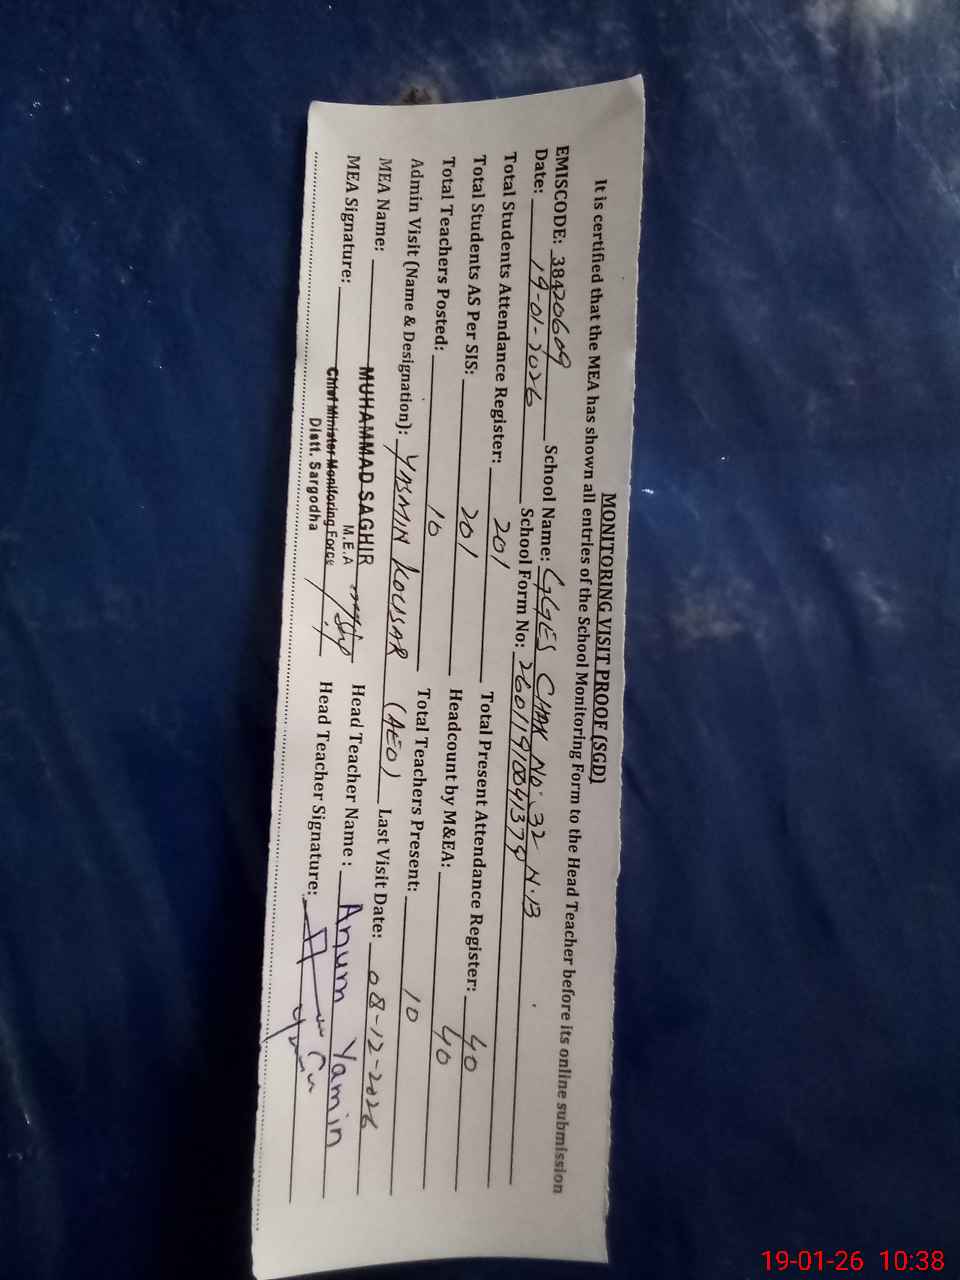 MONITORING VISIT PROOF (SGD)
It is certified that the MEA has shown all entries of the School Monitoring Form to the Head Teacher before its online submission
EMISCODE: 38420609 School Name: GGES CHAK NO. 32 N.B
Date: 19-01-2026 School Form No: 26011910041379
Total Students Attendance Register: 201 Total Present Attendance Register: 40
Total Students AS Per SIS: 201 Headcount by M&EA: 40
Total Teachers Posted: 10 Total Teachers Present: 10
Admin Visit (Name & Designation): YASMIN KOUSAR (AEO) Last Visit Date: 08-12-2026
MEA Name: MUHAMMAD SAGHIR Head Teacher Name : Anum Yamin
M.E.A
MEA Signature: Chief Minister Monitoring Force Head Teacher Signature:
Distt. Sargodha
19-01-26 10:38